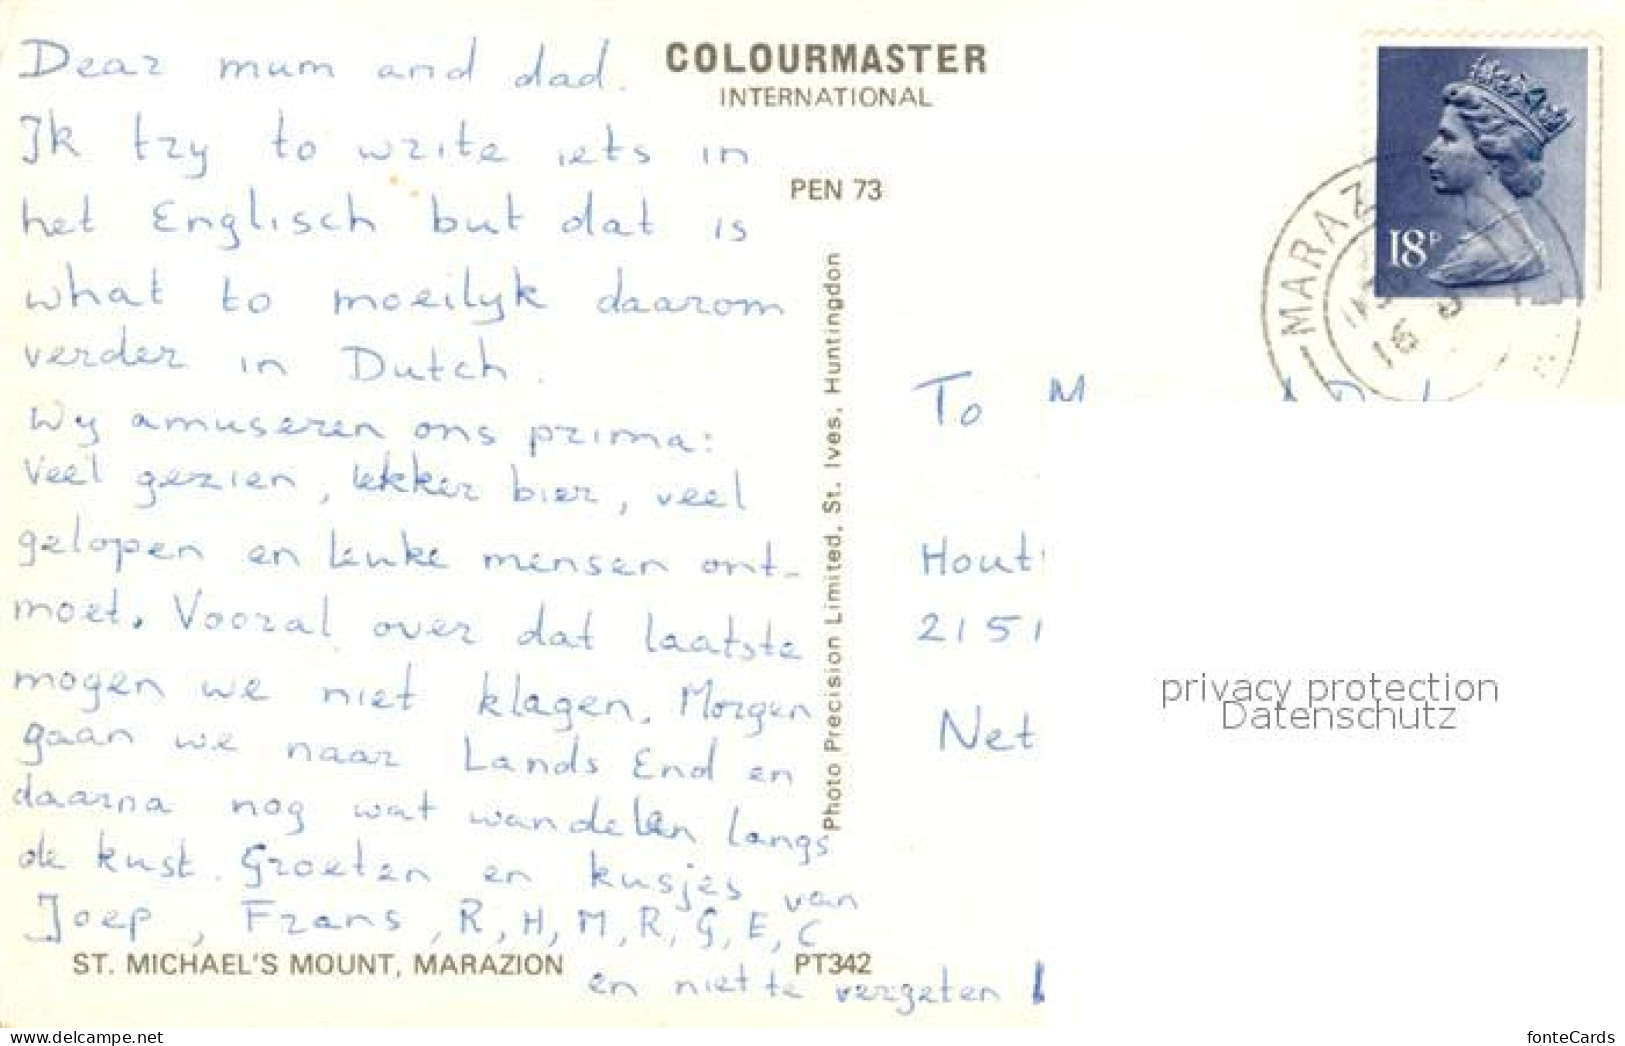 Dear mum and dad.
Ik try to write iets in
het Englisch but dat is
what to moeilijk daarom
verder in Dutch.
Wij amuseren ons prima:
Veel gezien, lekker bier, veel
gelopen en leuke mensen ont-
moet. Vooral over dat laatste
mogen we niet klagen. Morgen
gaan we naar Lands End en
daarna nog wat wandelen langs
de kust. Groeten en kusjes van
Joep, Frans, R, H, M, R, G, E, C
en niet te vergeten
ST. MICHAEL'S MOUNT, MARAZION
PT342
COLOURMASTER
INTERNATIONAL
PEN 73
Photo Precision Limited, St. Ives, Huntingdon
18P
MARAZ
16
To M
Hout
2151
Net
privacy protection
Datenschutz
www.delcampe.net
fonteCards